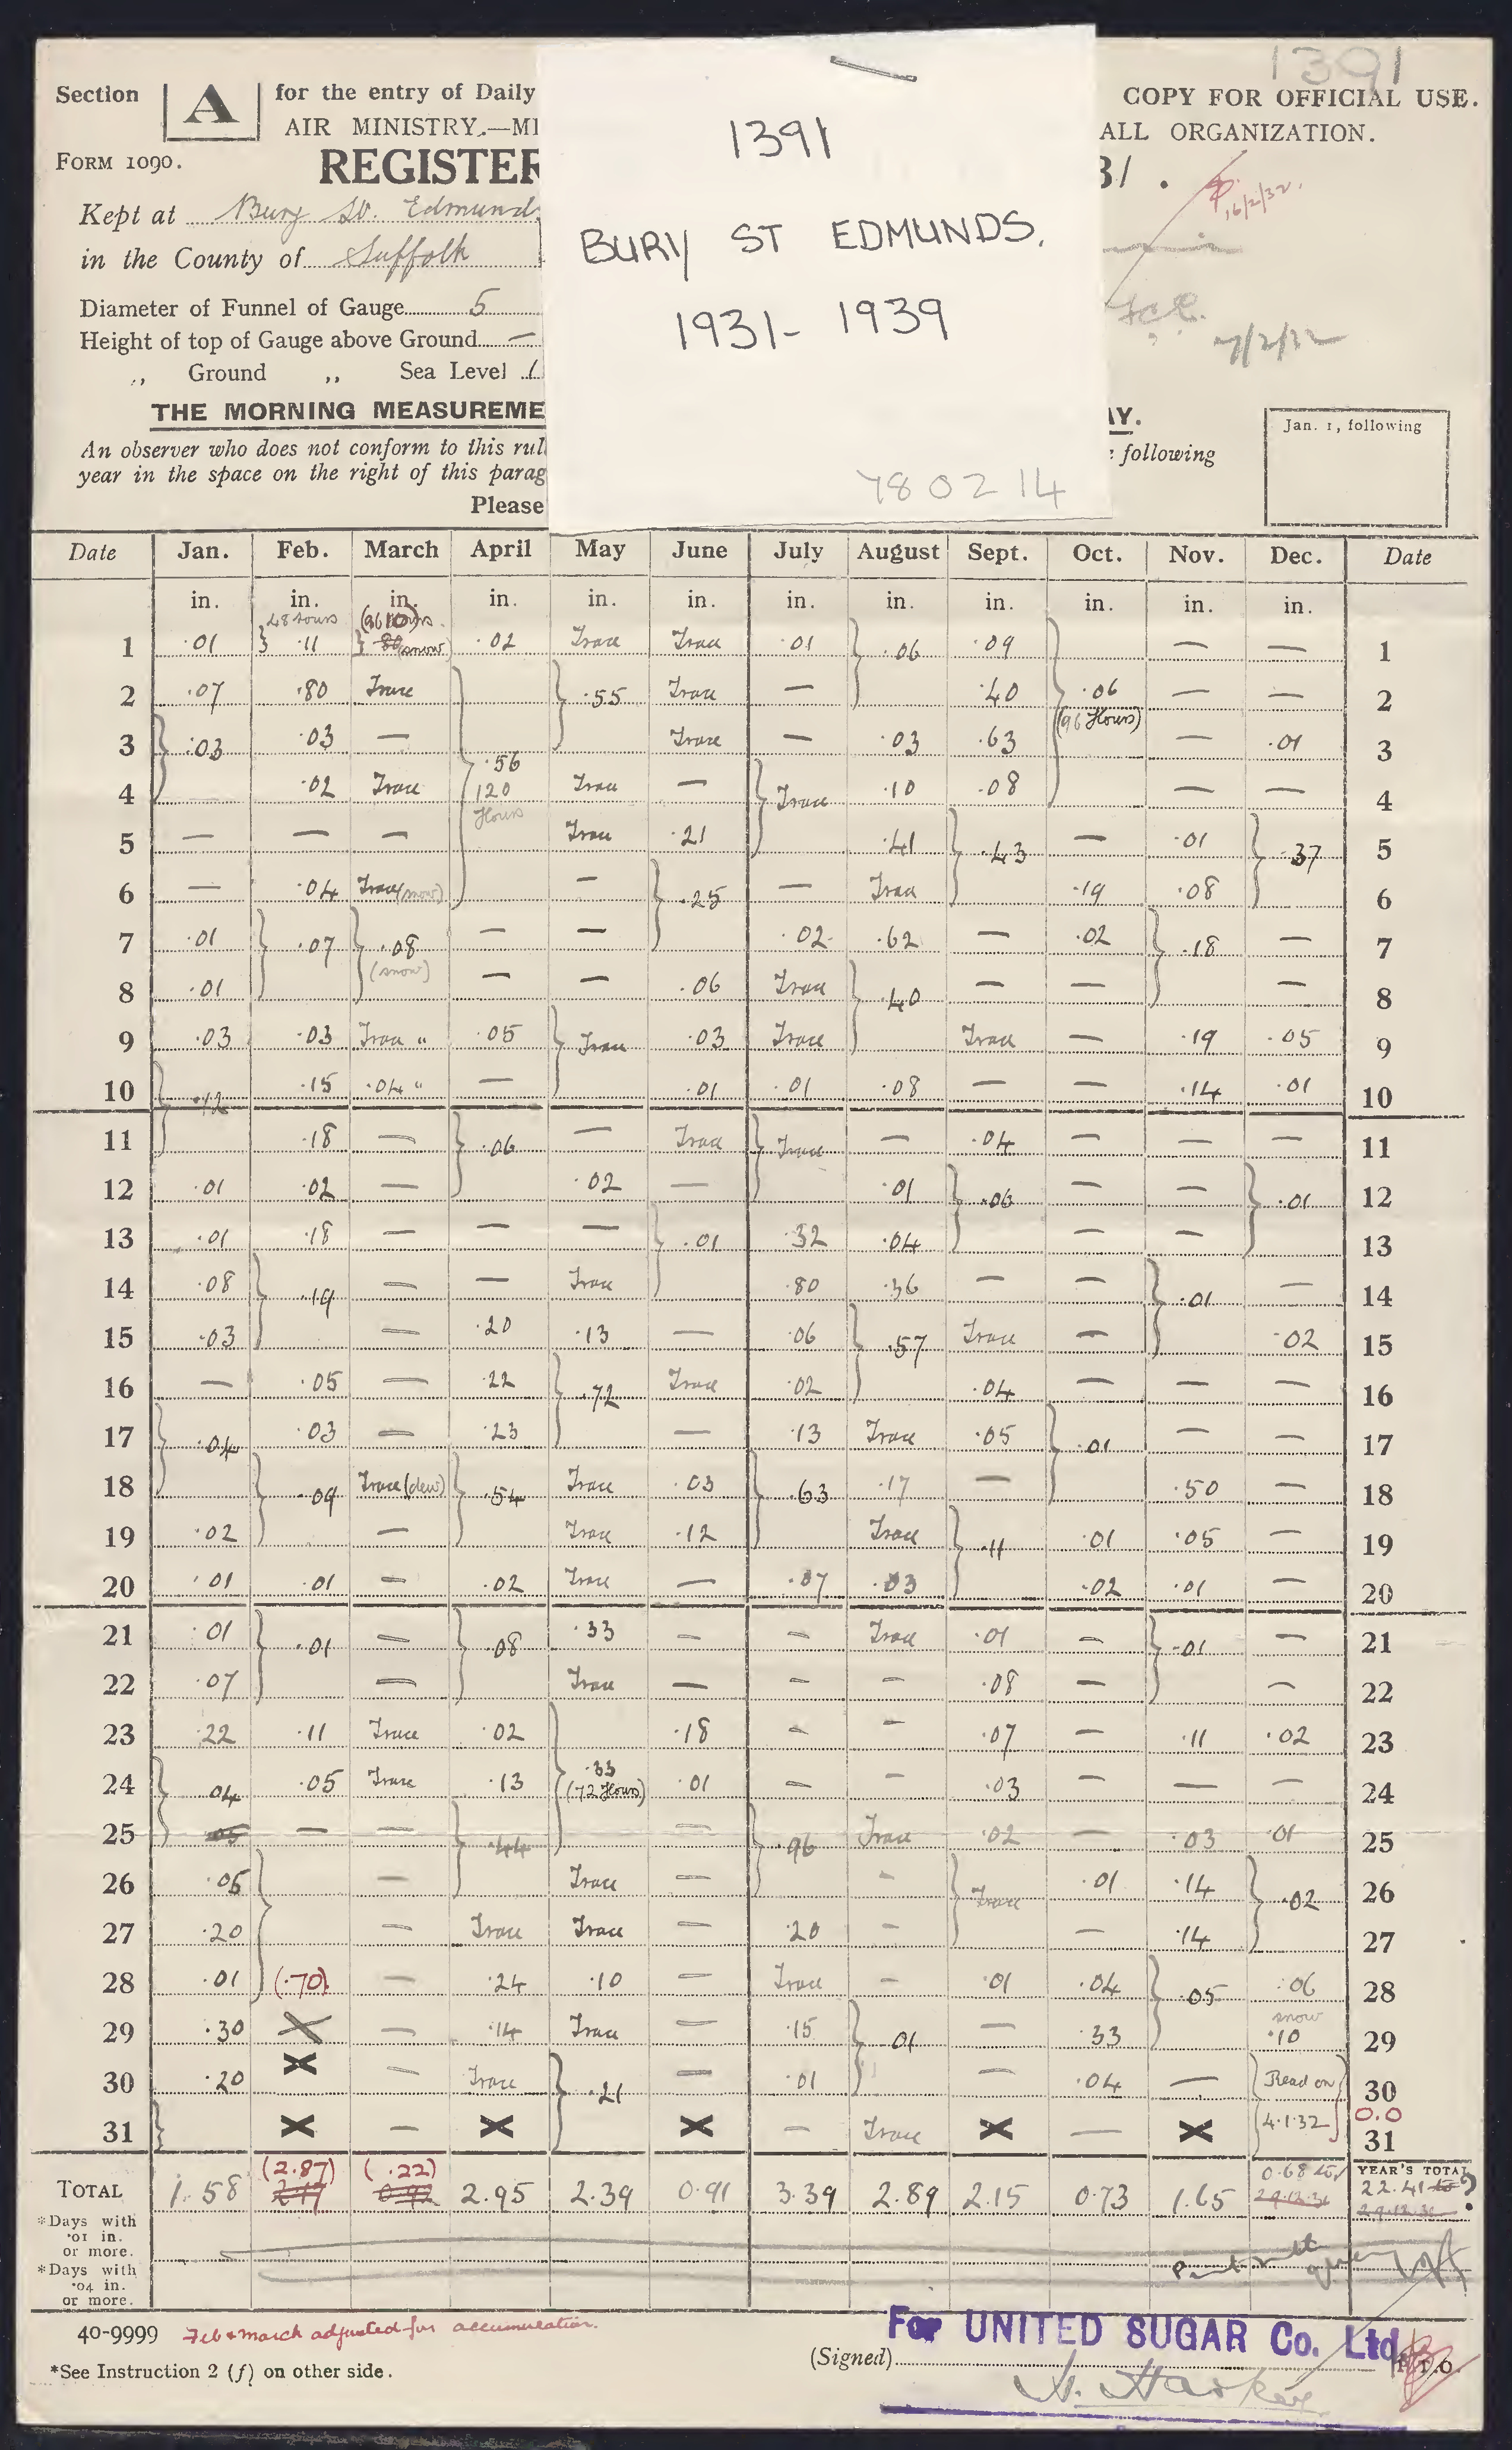 1391
Section A for the entry of Daily
COPY FOR OFFICIAL USE.
AIR MINISTRY.—MI
ALL ORGANIZATION.
FORM 1090.
REGISTER
31.
16/2/32.
Kept at Bury St. Edmunds
in the County of Suffolk
Diameter of Funnel of Gauge 5
Height of top of Gauge above Ground —
,, Ground ,, Sea Level 1
7/2/32
1391
BURY ST EDMUNDS.
1931- 1939
780214
THE MORNING MEASUREME
AY.
An observer who does not conform to this rul
: following
year in the space on the right of this parag
Please
Jan. 1, following
Date Jan. Feb. March April May June July August Sept. Oct. Nov. Dec. Date
in. in. in. in. in. in. in. in. in. in. in. in.
48 hours (96 hours)
1 .01 } .11 } 80 (snow) .02 Trace Trace .01 } .06 .09 } — — 1
2 .07 .80 Trace } } .55 Trace — .40 .06 — — 2
3 } .03 .03 — .56 Trace — .03 .63 (96 Hours) — .01 3
4 .02 Trace 120 Hours Trace — } Trace .10 .08 — — 4
5 — — — Trace .21 .41 } .43 — .01 } .37 5
6 — .04 Trace (snow) — } .25 — Trace .19 .08 6
7 .01 } .07 } .08 — — .02 .62 — .02 } .18 — 7
8 .01 (snow) — — .06 Trace } .40 — — — 8
9 .03 .03 Trace " .05 } Trace .03 Trace Trace — .19 .05 9
10 } .12 .15 .04 " — .01 .01 .08 — — .14 .01 10
11 .18 — } .06 — Trace } Trace — .04 — — — 11
12 .01 .02 — .02 — .01 } .06 — — } .01 12
13 .01 .18 — — — } .01 .32 .04 — — 13
14 .08 } .19 — — Trace .80 .36 — — } .01 — 14
15 .03 — .20 .13 — .06 } .57 Trace — .02 15
16 — .05 — .22 } .72 Trace .02 .04 — — — 16
17 } .04 .03 — .23 — .13 Trace .05 } .01 — — 17
18 } .09 Trace (dew) } .54 Trace .03 } .63 .17 — .50 — 18
19 .02 — Trace .12 Trace } .11 .01 .05 — 19
20 .01 .01 — .02 Trace — .07 .03 .02 .01 — 20
21 .01 } .01 — } .08 .33 — — Trace .01 — } .01 — 21
22 .07 — Trace — — — .08 — — 22
23 .22 .11 Trace .02 } .18 — — .07 — .11 .02 23
24 } .04 .05 Trace .13 .33 (72 Hours) .01 — — .03 — — — 24
25 .05 — — } .44 — } .96 Trace .02 — .03 .01 25
26 .05 } — Trace — — } Trace .01 .14 } .02 26
27 .20 — Trace Trace — .20 — — .14 27
28 .01 (.70) — .24 .10 — Trace — .01 .04 } .05 .06 28
29 .30 X — .14 Trace — .15 } .01 — .33 snow .10 29
30 .20 X — Trace } .21 — .01 — .04 — (Read on 30
0.0
31 } X — X X — Trace X — X 4.1.32) 31
(2.87) (.22) 0.68 to YEAR'S TOTAL
TOTAL 1.58 2.17 0.92 2.95 2.39 0.91 3.39 2.89 2.15 0.73 1.65 29.12.31 22.41 to ?
29.12.31
*Days with
.01 in.
or more.
*Days with
.04 in.
or more.
40-9999 Feb & March adjusted for accumulation.
For UNITED SUGAR Co. Ltd
(Signed)
P.T.O.
*See Instruction 2 (f) on other side.